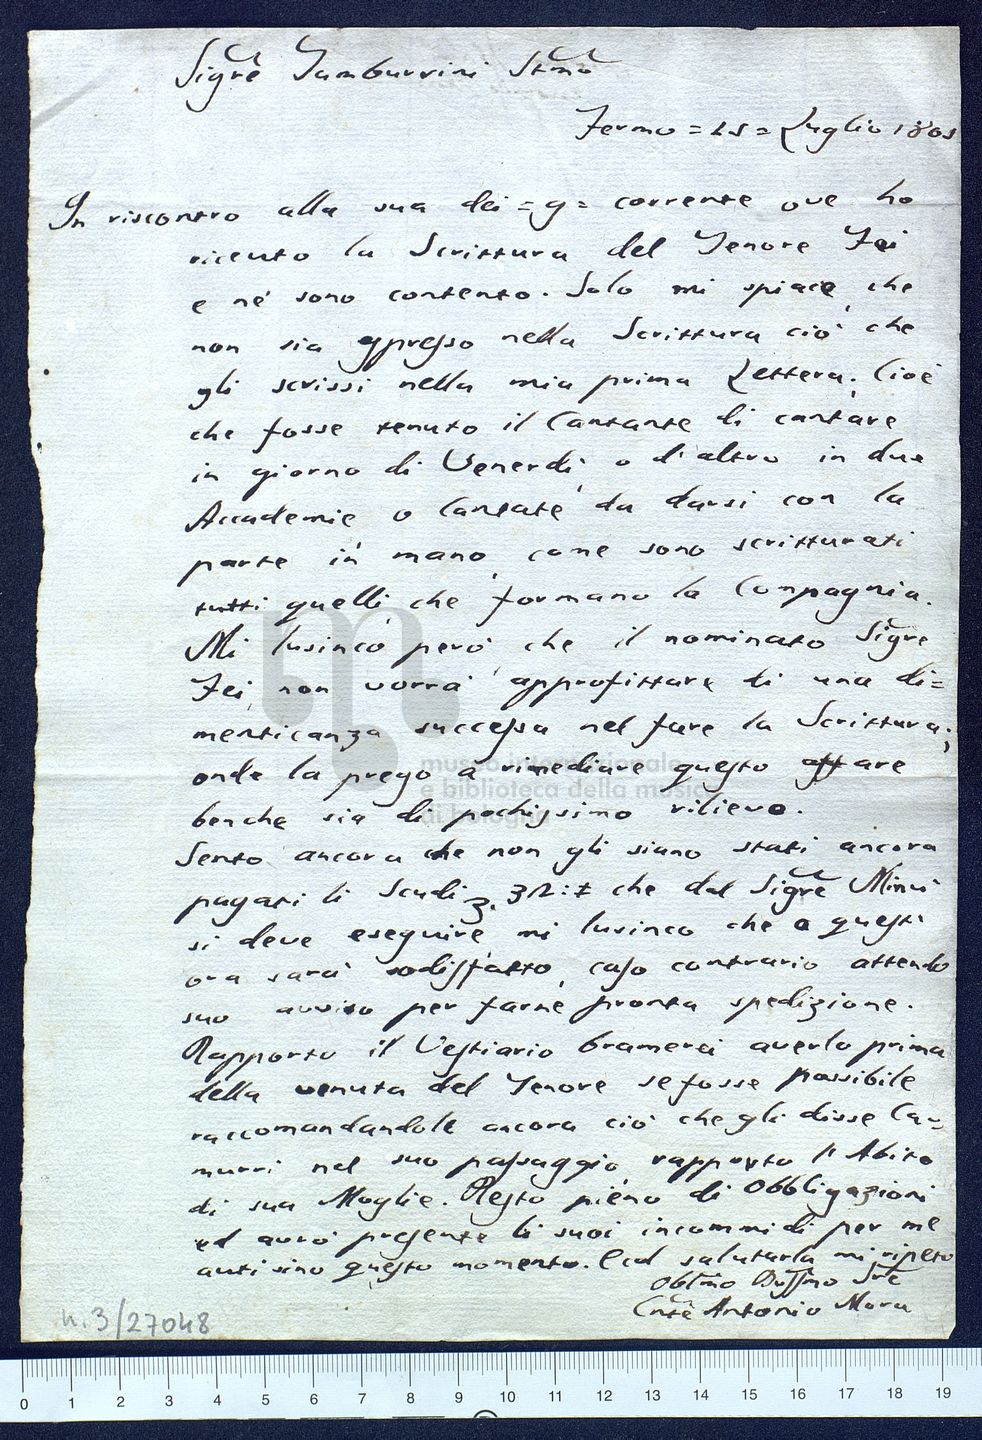 Sigre Tamburrini Stmo
Fermo = 15 = Luglio 1805
In riscontro alla sua dei = 9 = corrente ove ho
ricevuto la Scrittura del Tenore Fei
e né sono contento. Solo mi spiace, che
non sia espresso nella Scrittura ciò che
gli scrissi nella mia prima Lettera; Cioè
che fosse tenuto il Cantante di cantare
in giorno di Venerdì, o d'altro in due
Accademie o Cantate da darsi con la
parte in mano, come sono scritturati
tutti quelli, che formano la Compagnia.
Mi lusinco però che il nominato Sigre
Fei, non vorrà approfittare di una di=
menticanza successa nel fare la Scrittura;
onde la prego a rimediare questo affare
benche sia di pochissimo rilievo.
Sento ancora che non gli siano stati ancora
pagati li Scudi 32: che dal Sigre Minri
si deve eseguire, mi lusinco che a quest'
ora sarà sodisfatto, caso contrario attendo
suo avviso per farne pronta spedizione.
Rapporto il Vestiario bramerei averlo prima
della venuta del Tenore se fosse possibile
raccomandandole ancora ciò che gli disse Ca=
murri nel suo passaggio, rapporto l'Abito
di sua Moglie. Resto pieno di Obbligazioni
ed avrò presente li suoi incommidi per me
auti sino questo momento. E col salutarla mi ripeto
Obblmo Dvssmo Sre
Cnte Antonio Mora
n. 3/27048
museo internazionale
e biblioteca della musica
di bologna
0 1 2 3 4 5 6 7 8 9 10 11 12 13 14 15 16 17 18 19